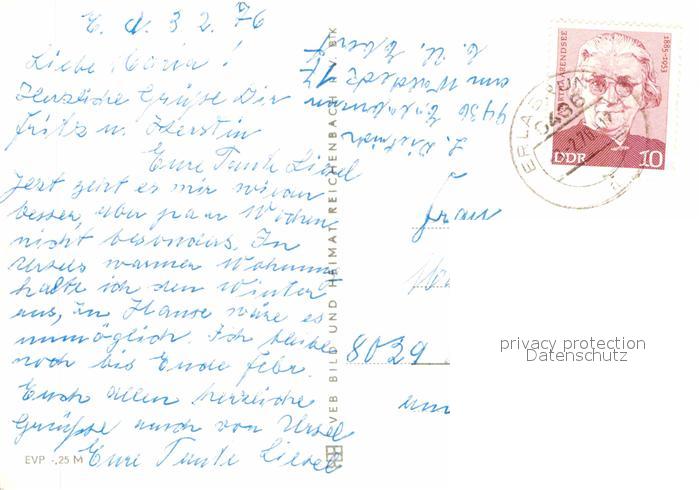 E. d. 3 2. 76
Liebe Maria!
Herzliche Grüße Dir
Fritz u. Kerstin
Eure Tante Liesel
Jezt geht es mir wieder
besser, aber paar Wochen
nicht besonders. In
Ursels warmer Wohnung
halte ich den Winter
aus, zu Hause wäre es
unmöglich. Ich bleibe
noch bis Ende Febr.
Euch allen herzliche
Grüße auch von Ursel
Eure Tante Liesel
EVP -,25 M
VEB BILD UND HEIMAT REICHENBACH i. V. BIK
9436
am
17
Frau
8029
ARENDSEE
1885-1953
DDR 10
ERLA
9436
privacy protection
Datenschutz